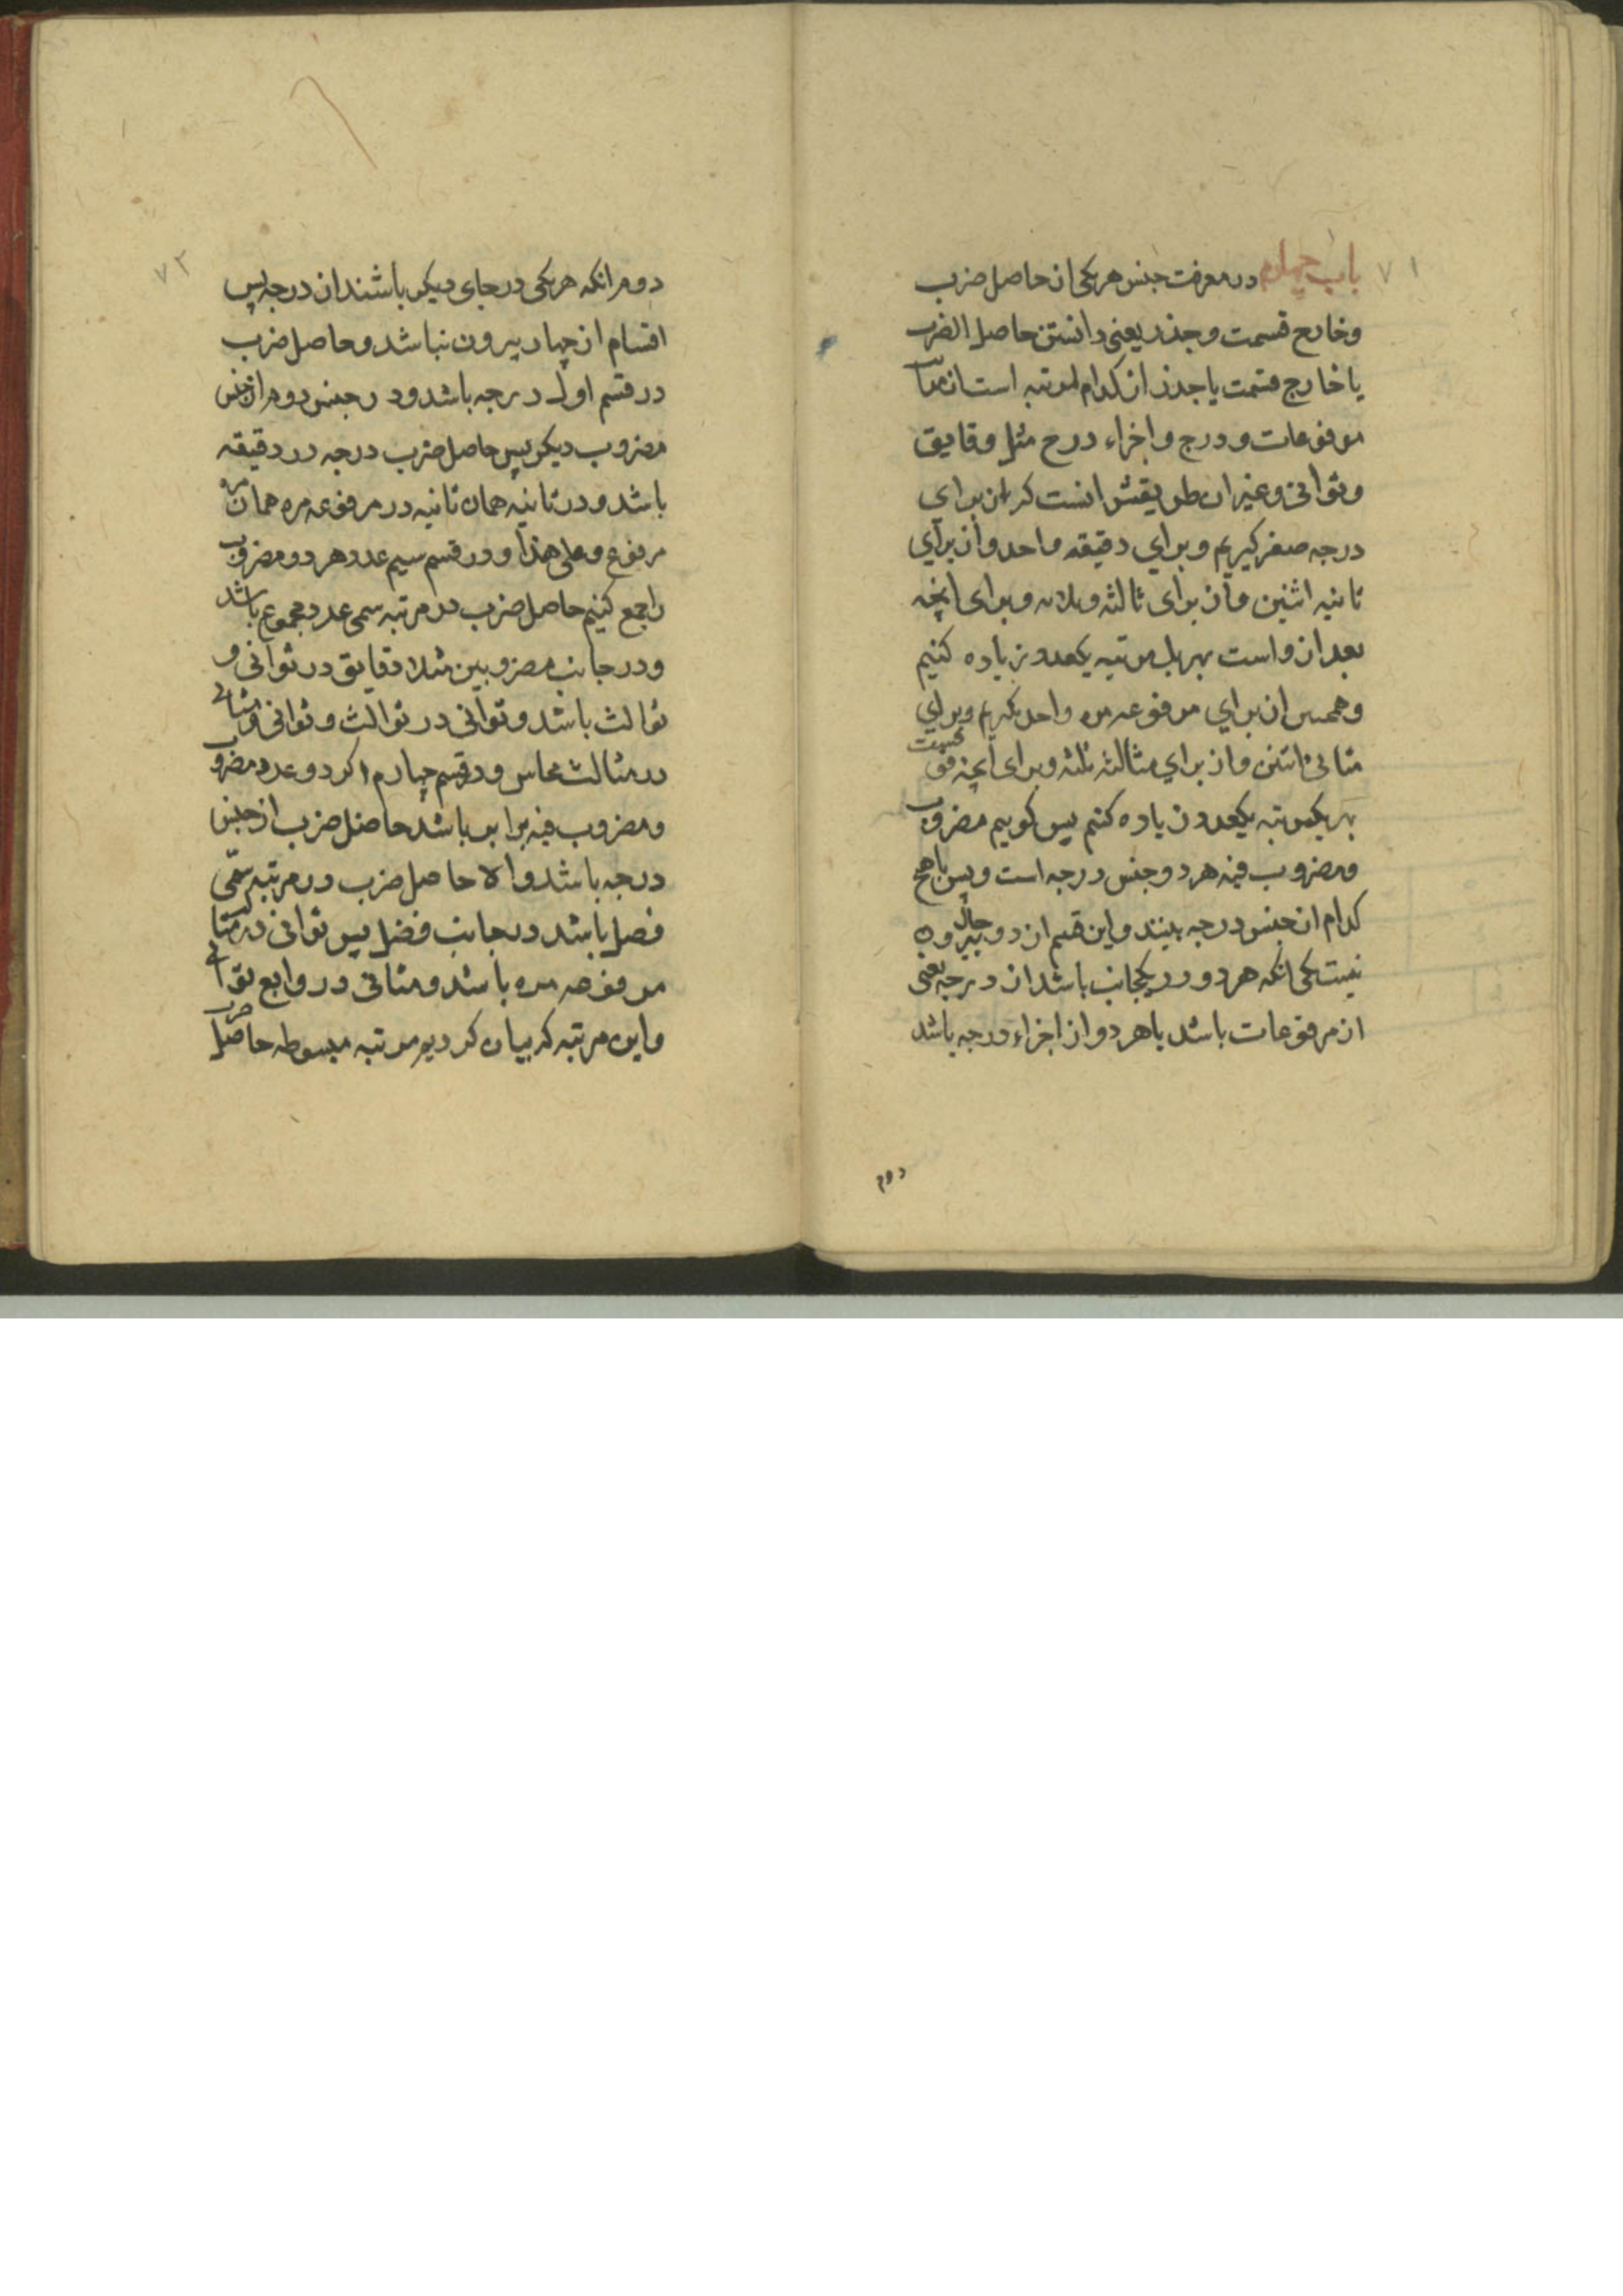 ۷۱
باب چهارم در معرفت جنس هر یکی از حاصل ضرب
و خارج قسمت و جذر یعنی دانستن حاصل الضرب
یا خارج قسمت یا جذر از کدام مرتبه است از مراتب
مرفوعات و درج و اجزاء درج مثل دقایق
و ثوانی و غیر ان طریقش انست که از برای
درجه صفر کیریم و برای دقیقه واحد و از برای
ثانیه اثنین و از برای ثالثه و برای انچه
بعد از و است بهر یک مرتبه یکعدد زیاده کنیم
و همچنین از برای مرفوعه مره واحد کیریم و برای
مثانی اثنین و از برای مثالثه ثلثه و برای انچه فوق
بهر یکمرتبه یکعدد زیاده کنیم پس کوییم مضروب
و مضروب فیه هر دو جنس درجه است و پس یا هیچ
کدام از جنس درجه نیند و این قسم از دو حال بیرون
نیست یکی انکه هر دو در یکجانب باشد از درجه یعنی
از مرفوعات باشد یا هر دو از اجزاء درجه باشد
دوم
۷۲
دوم انکه هر یکی در جای دیکر باشند از درجه پس
اقسام از چهار بیرون نباشد و حاصل ضرب
در قسم اول درجه باشد و در جنس دوم از جنس
مضروب دیکر پس حاصل ضرب درجه در دقیقه
باشد و در ثانیه همان ثانیه در مرفوعه مره همان مره
مرفوع و علی هذا و در قسم سیم عدد هر دو مضروب
را جمع کنیم حاصل ضرب در مرتبه سمی عدد مجموع باشد
و در جانب مضروبین مثلا دقایق در ثوانی و
ثوالث باشد و ثوانی در ثوالث و ثوانی و مثانی
در مثالث مخامس و در قسم چهارم اکر دو عدد مضروب
و مضروب فیه برابر باشد حاصل ضرب از جنس
درجه باشد و الا حاصل ضرب در مرتبه سمّی
فضل باشد در جانب فضل پس ثوانی در مثالث
مرفوعه مره باشد و مثانی در روابع ثوانی
و این مرتبه که بیان کردیم مرتبه مبسوطه حاصل ضرب